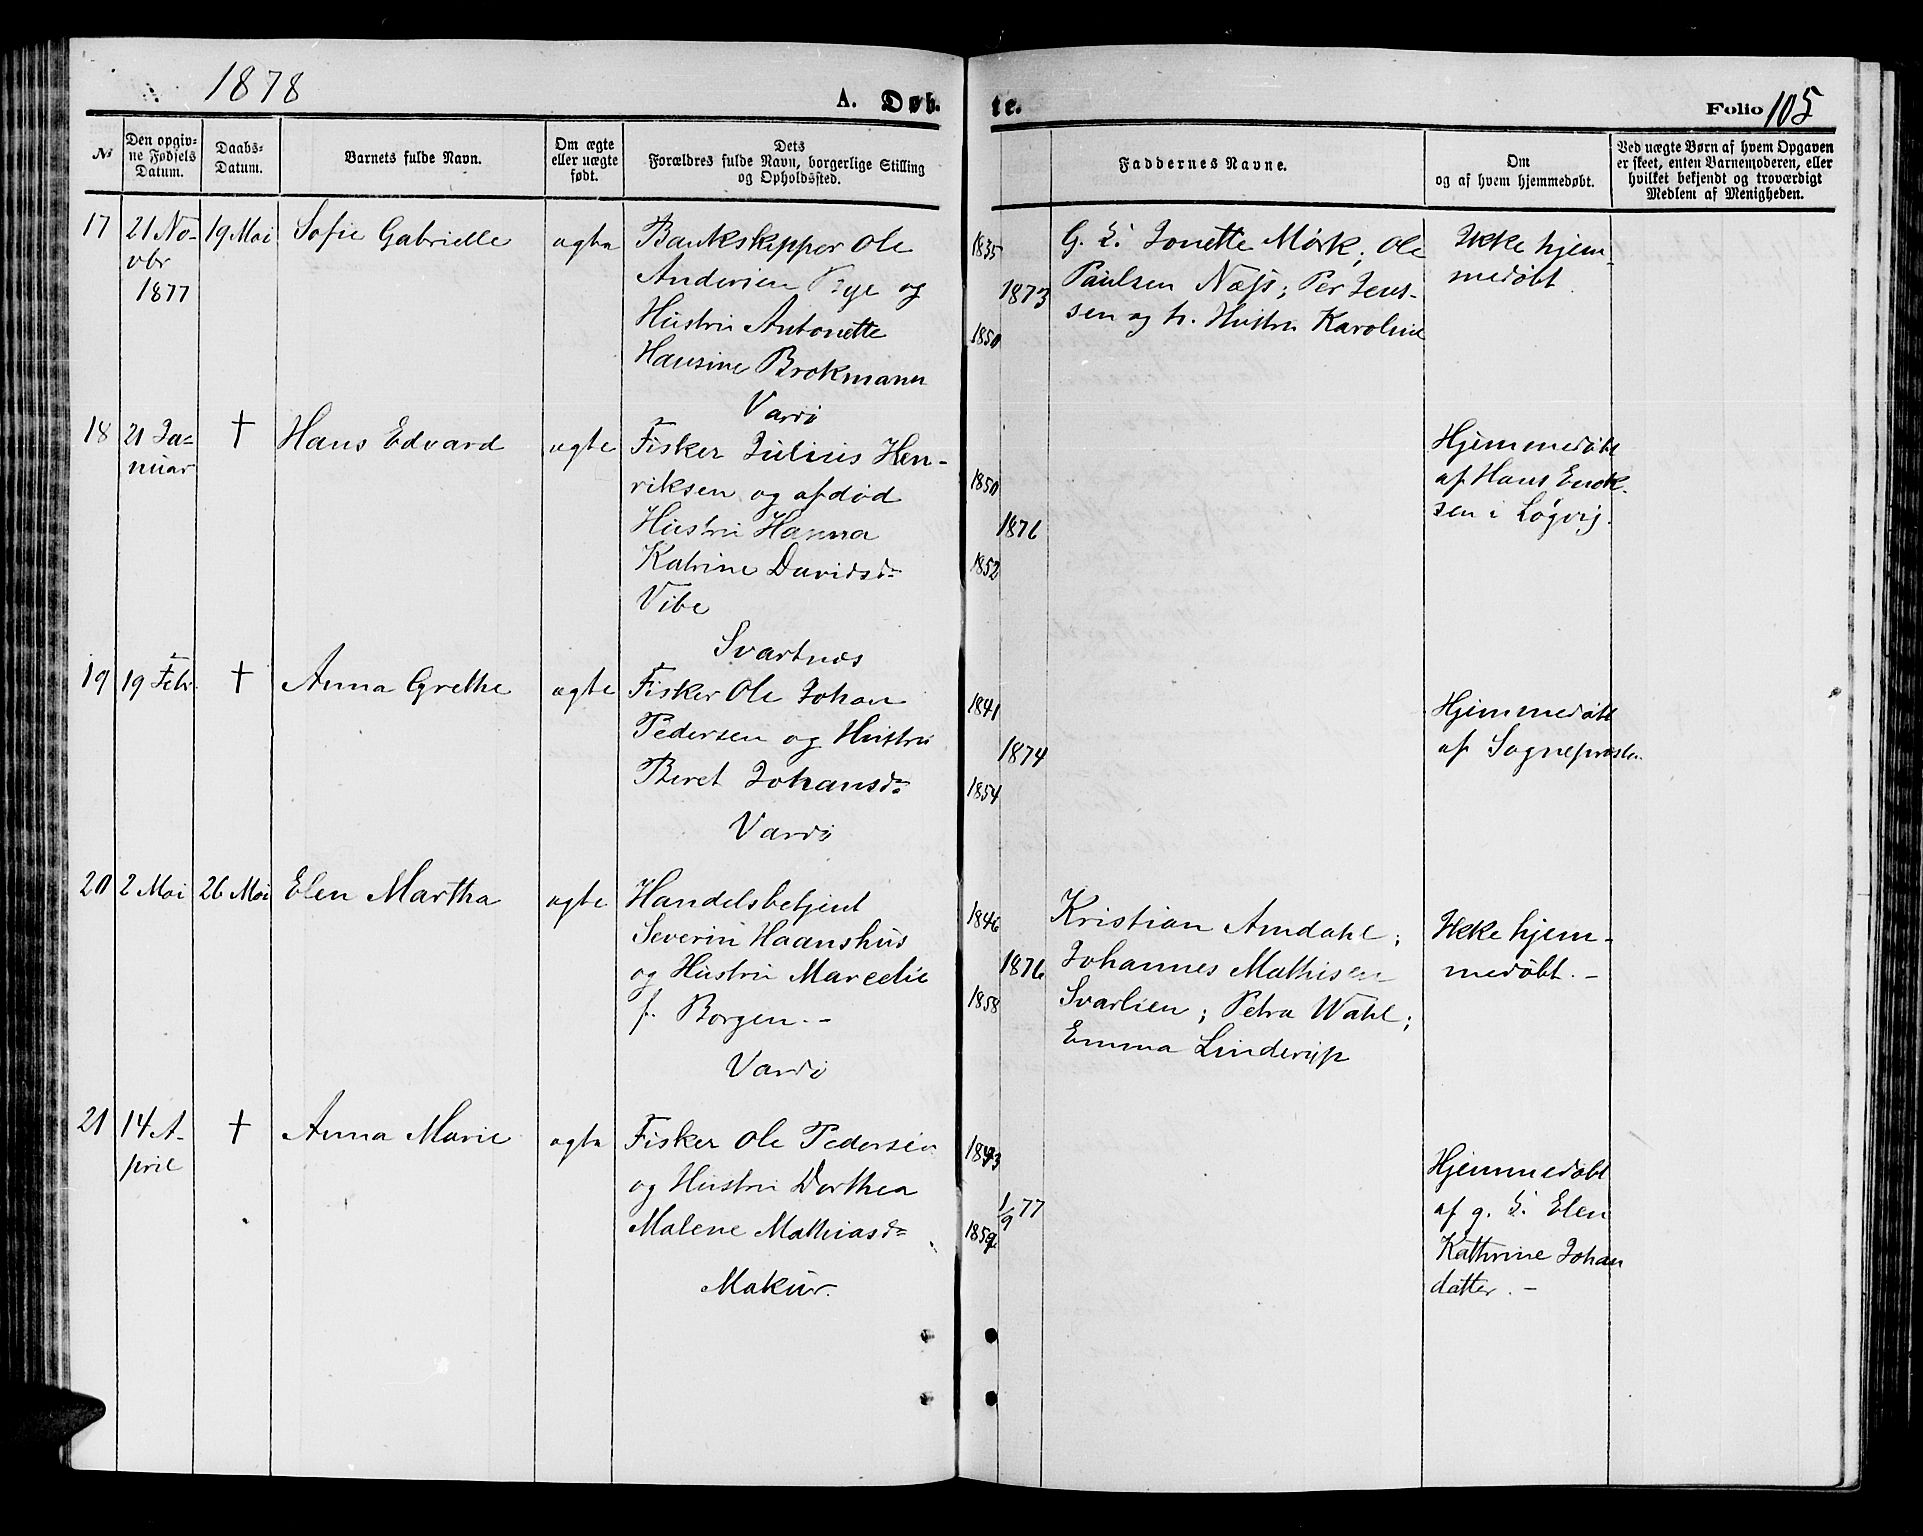 1878
A. Døb-
te.
Folio 105
No
Den opgiv-
ne Fødsels
Datum.
Daabs-
Datum.
Barnets fulde Navn.
Om ægte
eller uægte
født.
Dets
Forældres fulde Navn, borgerlige Stilling
og Opholdssted.
Faddernes Navne.
Om
og af hvem hjemmedøbt.
Ved uægte Børn af hvem Opgaven
er skeet, enten Barnemoderen, eller
hvilket bekjendt og troværdigt
Medlem af Menigheden.
17
21 No-
vbr
1877
19 Mai
Sofie Gabrielle
ægte
Bankskipper Ole
Andersen Rye og
Hustru Antonette
Hansine Brokmann
Vardø
1835
1873
1850
G. L. Jonette Mørk; Ole
Paulsen Næss; Per Jens-
sen og h. Hustru Karoline
Ikke hjem-
medøbt.
18
21 Ja-
nuar
†
Hans Edvard
ægte
Fisker Julius Hen-
riksen og afdød
Hustru Hanna
Katrine Davidsdr
Vibe
Svartnæs
1850
1876
1852
Hjemmedøbt
af Hans Enok-
sen i Løgvig.
19
19 Febr.
†
Anna Grethe
ægte
Fisker Ole Johan
Pedersen og Hustru
Beret Johansdr
Vardø
1841
1874
1854
Hjemmedøbt
af Sognepresten
20
2 Mai
26 Mai
Elen Martha
ægte
Handelsbetjent
Severin Haanshus
og Hustru Marcelie
f. Borgen. -
Vardø
1846
1876
1858
Kristian Amdahl;
Johannes Mathisen
Svarlien; Petra Wahl;
Emma Linderup
Ikke hjem-
medøbt. -
21
14 A-
pril
†
Anna Marie
ægte
Fisker Ole Pedersen
og Hustru Dorthea
Malene Mathiasdr
Makur.
1843
1/9 77
1859
Hjemmedøbt
af g. L. Elen
Kathrine Johan
datter. -